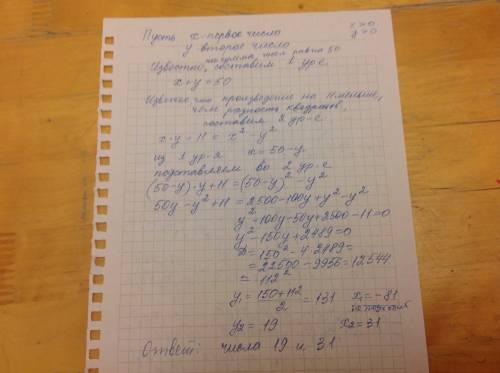 Пусть x - первое число x>0
y второе число y>0
Известно, что сумма чисел равна 50
составим 1 ур-е
x+y=50
Известно что произведение на 11 меньше,
чем разность квадратов,
составим 2 ур-е
x·y+11 = x²-y²
из 1 ур-я x=50-y
подставляем во 2 ур-е
(50-y)·y+11=(50-y)²-y²
50y-y²+11=2500-100y+y²-y²
y²-100y-50y+2500-11=0
y²-150y+2489=0
D=150²-4·2489=
=22500-9956=12544
=112²
y₁=150+112/2=131 x₁=-81
не подходит
y₂=19 x₂=31
Ответ: числа 19 и 31